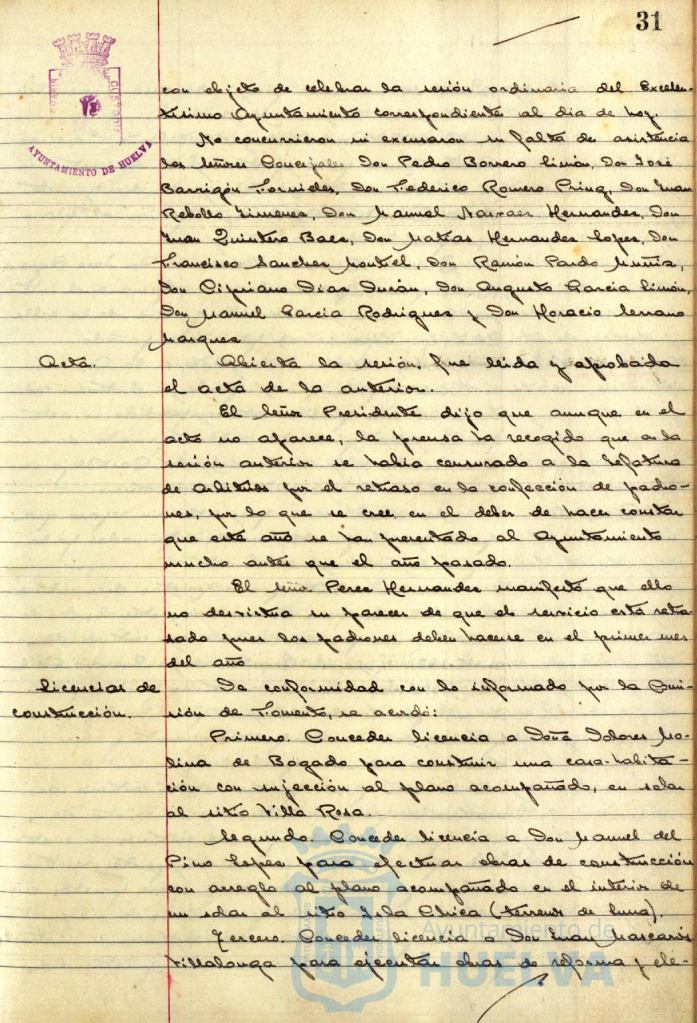 31
AYUNTAMIENTO DE HUELVA
con objeto de celebrar la sesión ordinaria del Excelen-
tísimo Ayuntamiento correspondiente al dia de hoy.
No concurrieron ni excusaron su falta de asistencia
los Señores Concejales Don Pedro Borrero Limón, Don José
Barrigón Fornieles, Don Federico Romero Prinq, Don Juan
Rebollo Jimenez, Don Manuel Narvaez Hernandez, Don
Juan Quintero Baez, Don Matías Hernandez Lopez, Don
Francisco Sanchez Montiel, Don Ramón Pardo Muñiz,
Don Cipriano Dias Durán, Don Augusto Garcia Limón,
Don Manuel Garcia Rodriguez y Don Horacio Serrano
Marquez
Acta.
Abierta la sesión, fue leida y aprobada
el acta de la anterior.
El Señor Presidente dijo que aunque en el
acta no aparece, la prensa ha recogido que en la
sesión anterior se habia censurado a la Jefatura
de Arbitrios por el retraso en la confección de padro-
nes, por lo que se cree en el deber de hacer constar
que este año se han presentado al Ayuntamiento
mucho antes que el año pasado.
El Señor Perez Hernandez manifestó que ello
no desvirtua su parecer de que el servicio está retra-
sado pues los padrones deben hacerse en el primer mes
del año
Licencias de
construcción.
De conformidad con lo informado por la Comi-
sión de Fomento, se acordó:
Primero. Conceder licencia a Doña Dolores Mo-
lina de Bogado para construir una casa-habita-
ción con sujección al plano acompañado, en solar
al sitio Villa Rosa.
Segundo. Conceder licencia a Don Manuel del
Pino Lopez para efectuar obras de construcción
con arreglo al plano acompañado en el interior de
un solar al sitio Isla Chica (terrenos de Luna).
Tercero. Conceder licencia a Don Juan Mascarós
Villalonga para ejecutar obras de reforma y ele-
Ayuntamiento de
HUELVA